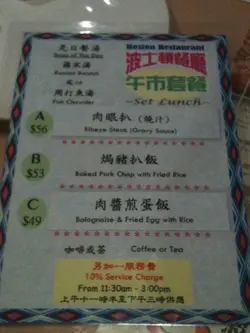 是日餐湯
Soup of The Day
羅宋湯
Russian Borsch
或/or
周打魚湯
Fish Chowder
Boston Restaurant
波士頓餐廳
午市套餐
~Set Lunch~
A
$56
肉眼扒 (燒汁)
Ribeye Steak (Gravy Sauce)
B
$53
焗豬扒飯
Baked Pork Chop with Fried Rice
C
$49
肉醬煎蛋飯
Bolognaise & Fried Egg with Rice
咖啡或茶 Coffee or Tea
另加一服務費
10% Service Charge
From 11:30am - 3:00pm
上午十一時半至下午三時供應